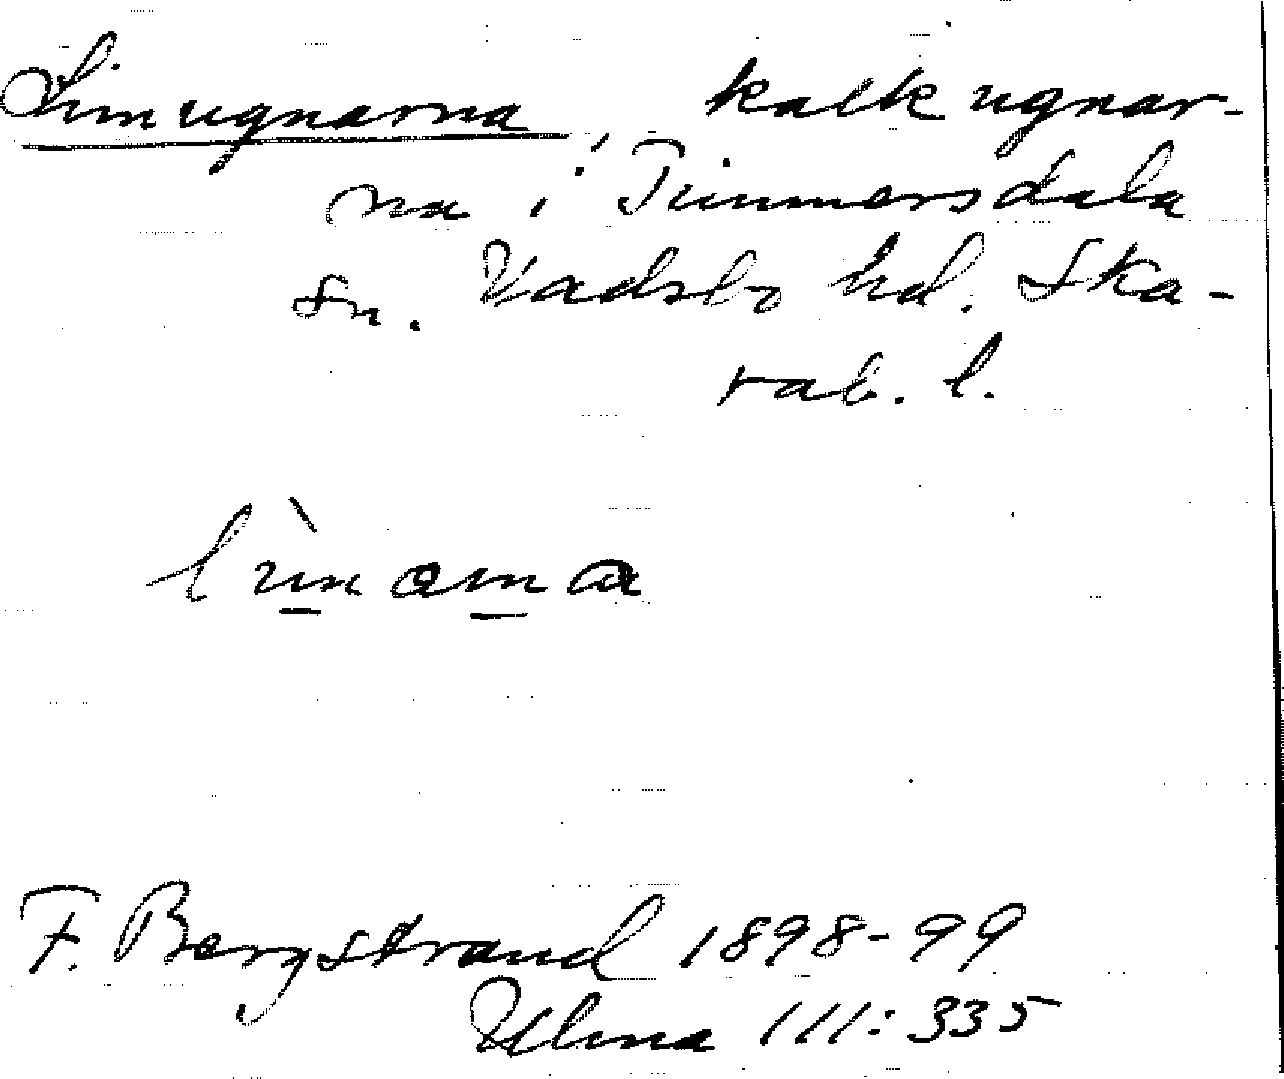 Limugnarna, kalkugnar-
na i Timmersdala
sn. Vadsbo hd. Ska-
rab. l.
F. Bergstrand 1898-99
Ulma 111:335